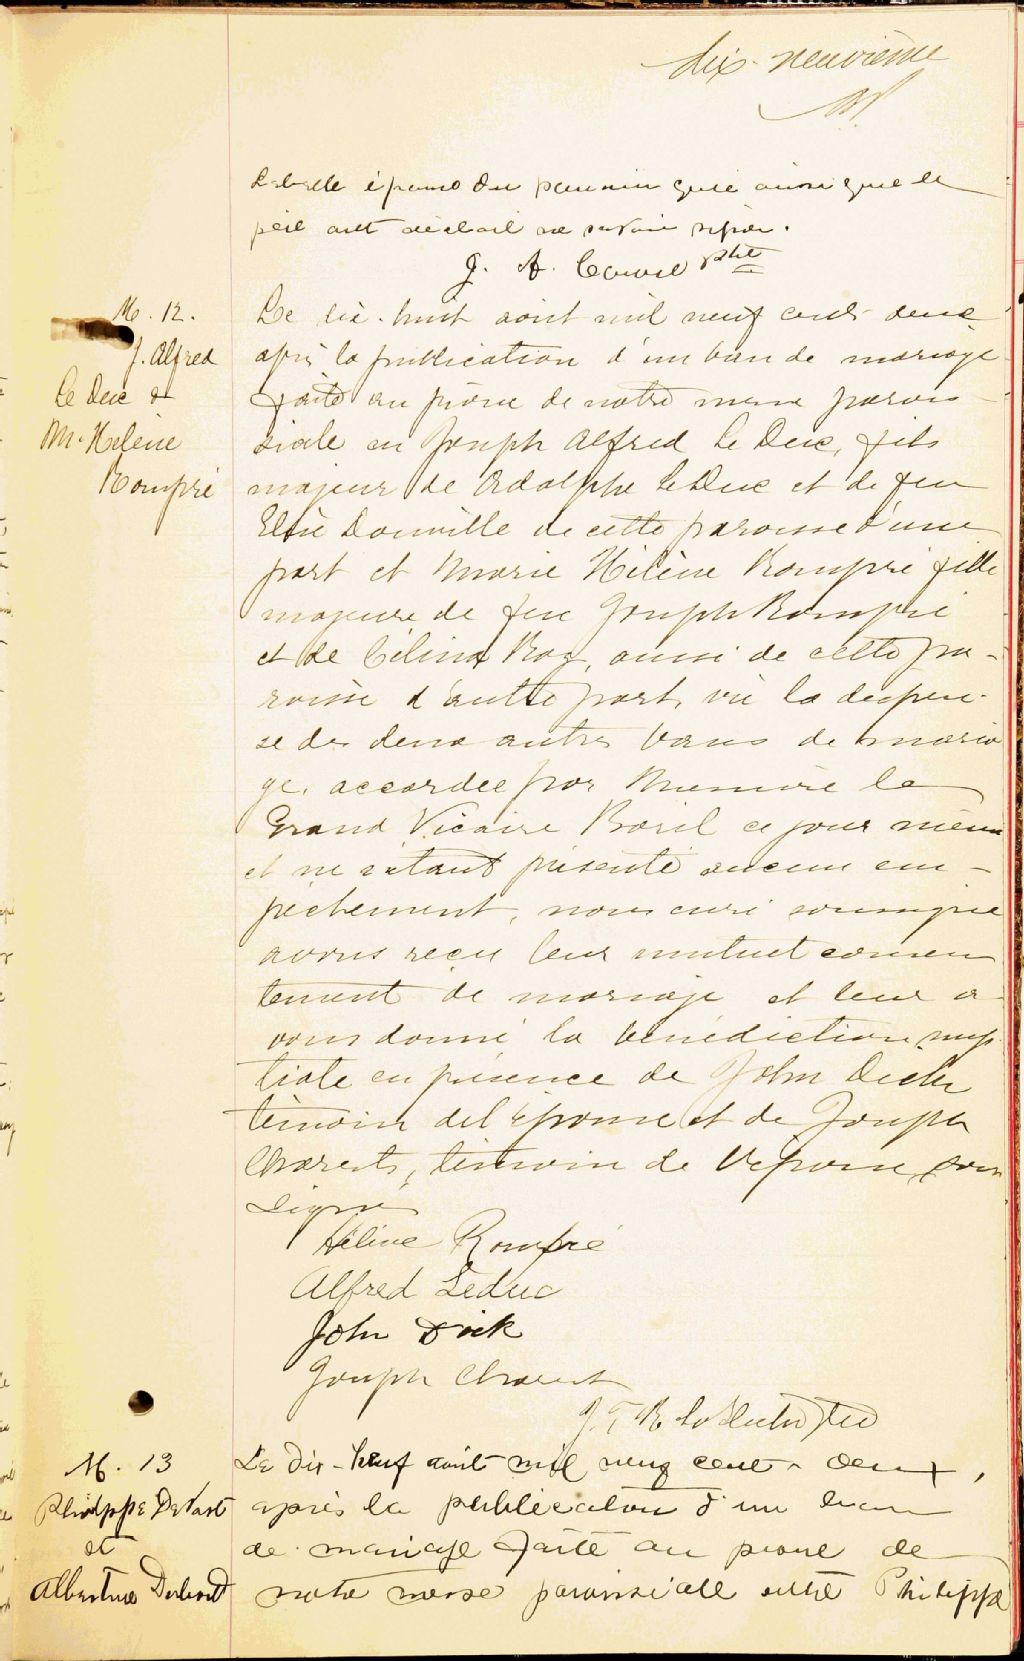 dix-neuvième
épouse du parrain qui ainsi que le
père ont déclaré ne savoir signer.
J. A. Ptre
M. 12.
J. Alfred
Le Duc &
M. Hélène
Rompré
Le dix-huit août mil neuf cent deux
après la publication d'un ban de mariage
faite au prône de notre messe parois
siale en Joseph Alfred Le Duc, fils
majeur de Adolphe Le Duc et de feu
Elsie Douville de cette paroisse d'une
part et Marie Hélène Rompré fille
majeure de feu Joseph Rompré
et de Célina Roy, aussi de cette pa-
roisse d'autre part, vu la dispen-
se des deux autres bans de maria
ge, accordée par Monsieur le
Grand Vicaire Baril ce jour même
et ne s'étant présenté aucun em-
pêchement, nous curé soussigné
avons reçu leur mutuel consen
tement de mariage et leur a-
vons donné la bénédiction nup
tiale en présence de John
témoin de l'épouse et de Joseph
Charest, témoin de l'épouse,
signé
Héline Rompré
Alfred Leduc
John Dick
Joseph Charest
J. T. R. Ptre
M. 13
Philippe
et
Albertine
Le Dix-neuf août mil neuf cent-deux,
après la publication d'un ban
de mariage faite au prone de
notre messe paroissiale entre Philippe